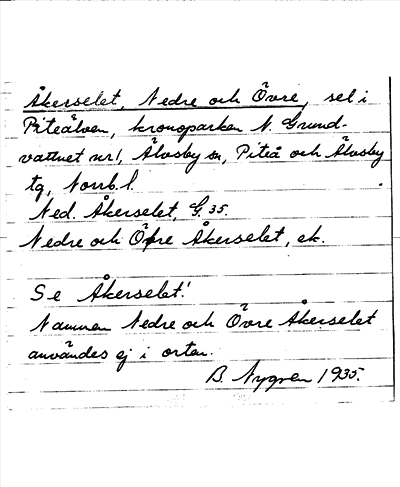 Åkerselet, Nedre och Övre, sel i
Piteälven, kronoparken N. Grund-
vattnet nr 1, Älvsby sn, Piteå och Älvsby
tg, Norrb. l.
Ned. Åkerselet, G. 35.
Nedre och Öfre Åkerselet, ek.
Se Åkerselet!
Namnen Nedre och Övre Åkerselet
användes ej i orten.
B. Nygren 1935.